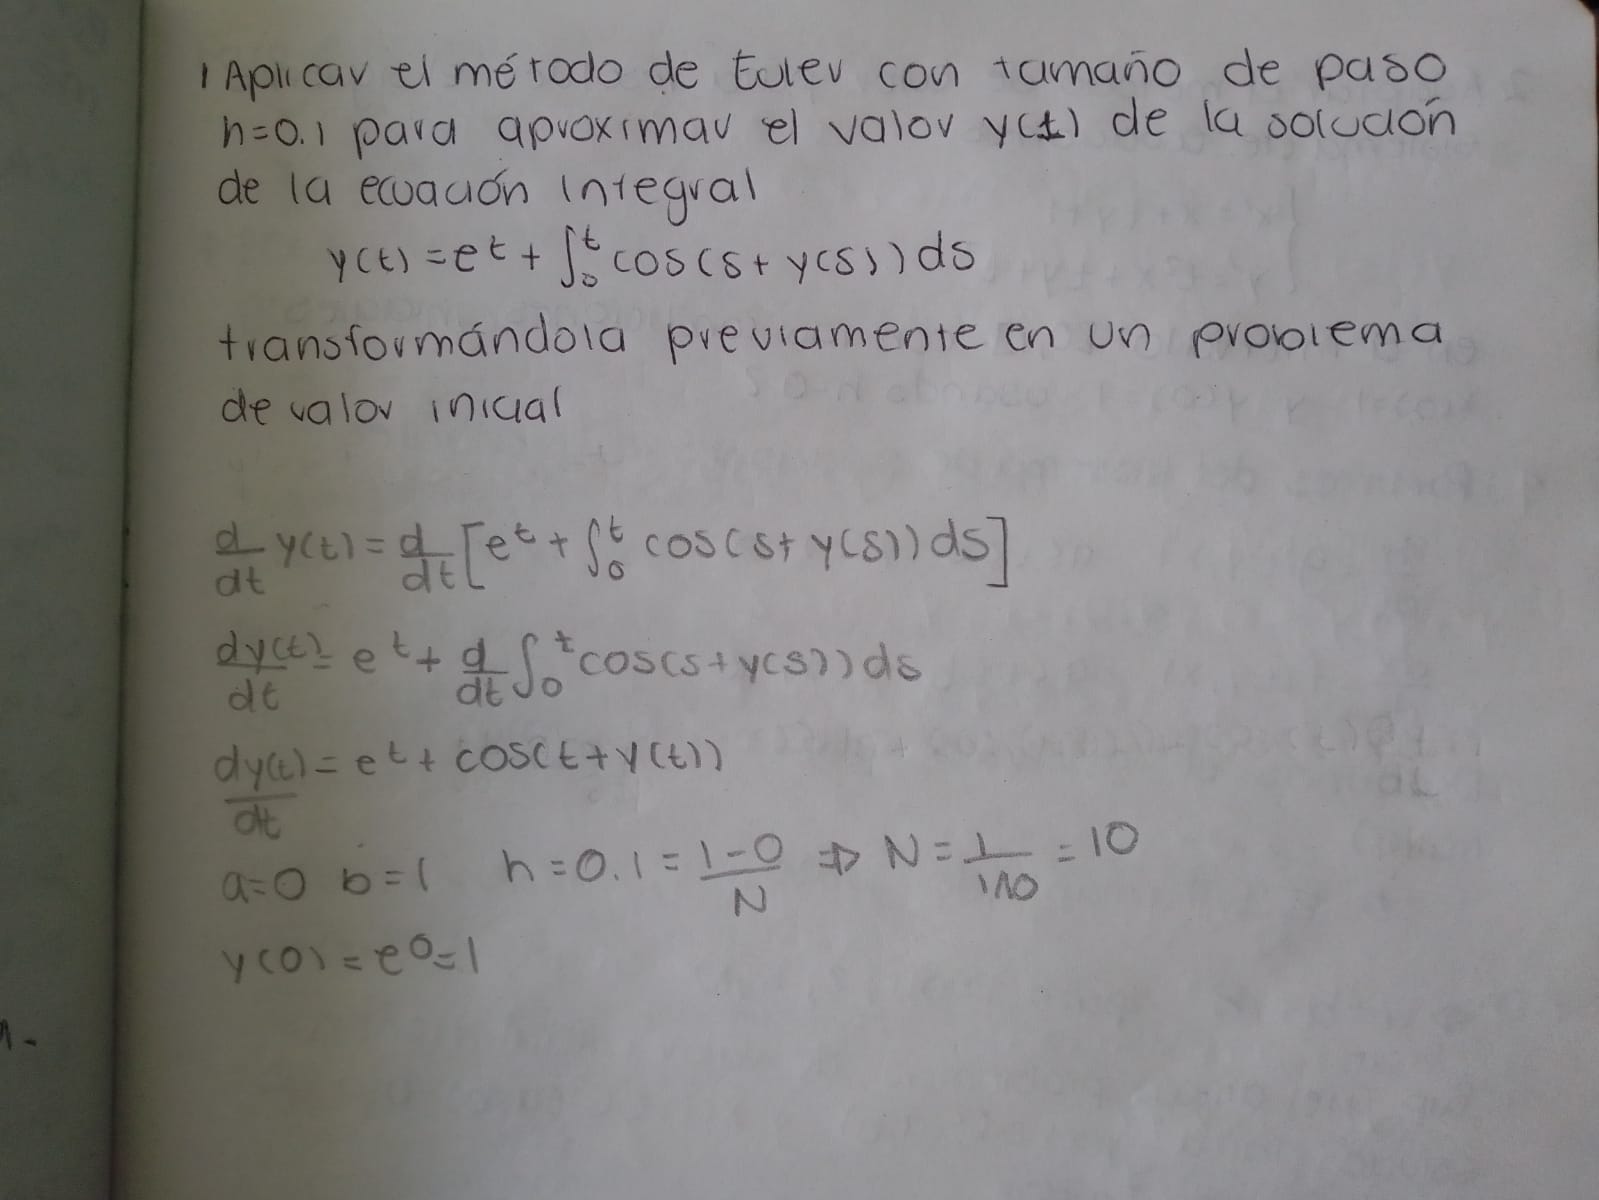 1 Aplicar el método de Euler con tamaño de paso
h=0.1 para aproximar el valor y(1) de la solución
de la ecuación integral
y(t) = e^t + ∫₀^t cos(s + y(s)) ds
transformándola previamente en un problema
de valor inicial
d/dt y(t) = d/dt [e^t + ∫₀^t cos(s + y(s)) ds]
dy(t)/dt = e^t + d/dt ∫₀^t cos(s + y(s)) ds
dy(t)/dt = e^t + cos(t + y(t))
a=0 b=1 h=0.1 = (1-0)/N ⇒ N = 1/(1/10) = 10
y(0) = e^0 = 1